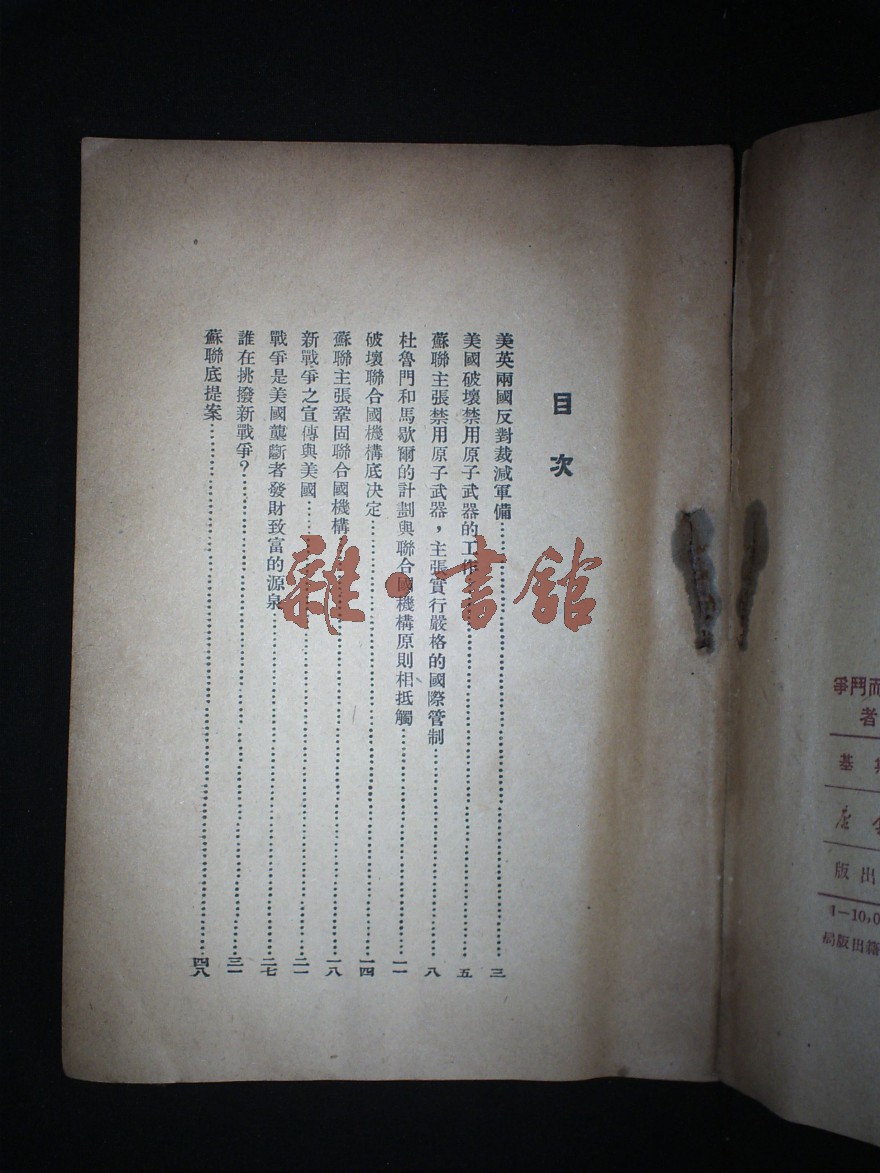 目次
美英兩國反對裁減軍備……三
美國破壞禁用原子武器的工作……五
蘇聯主張禁用原子武器,主張實行嚴格的國際管制……八
杜魯門和馬歇爾的計劃與聯合國機構原則相抵觸……一一
破壞聯合國機構底決定……一四
蘇聯主張鞏固聯合國機構……一八
新戰爭之宣傳與美國……二一
戰爭是美國壟斷者發財致富的源泉……二七
誰在挑撥新戰爭?……三一
蘇聯底提案……四八
雜·書館
而鬥爭
者
基
店
出版
1—10,0